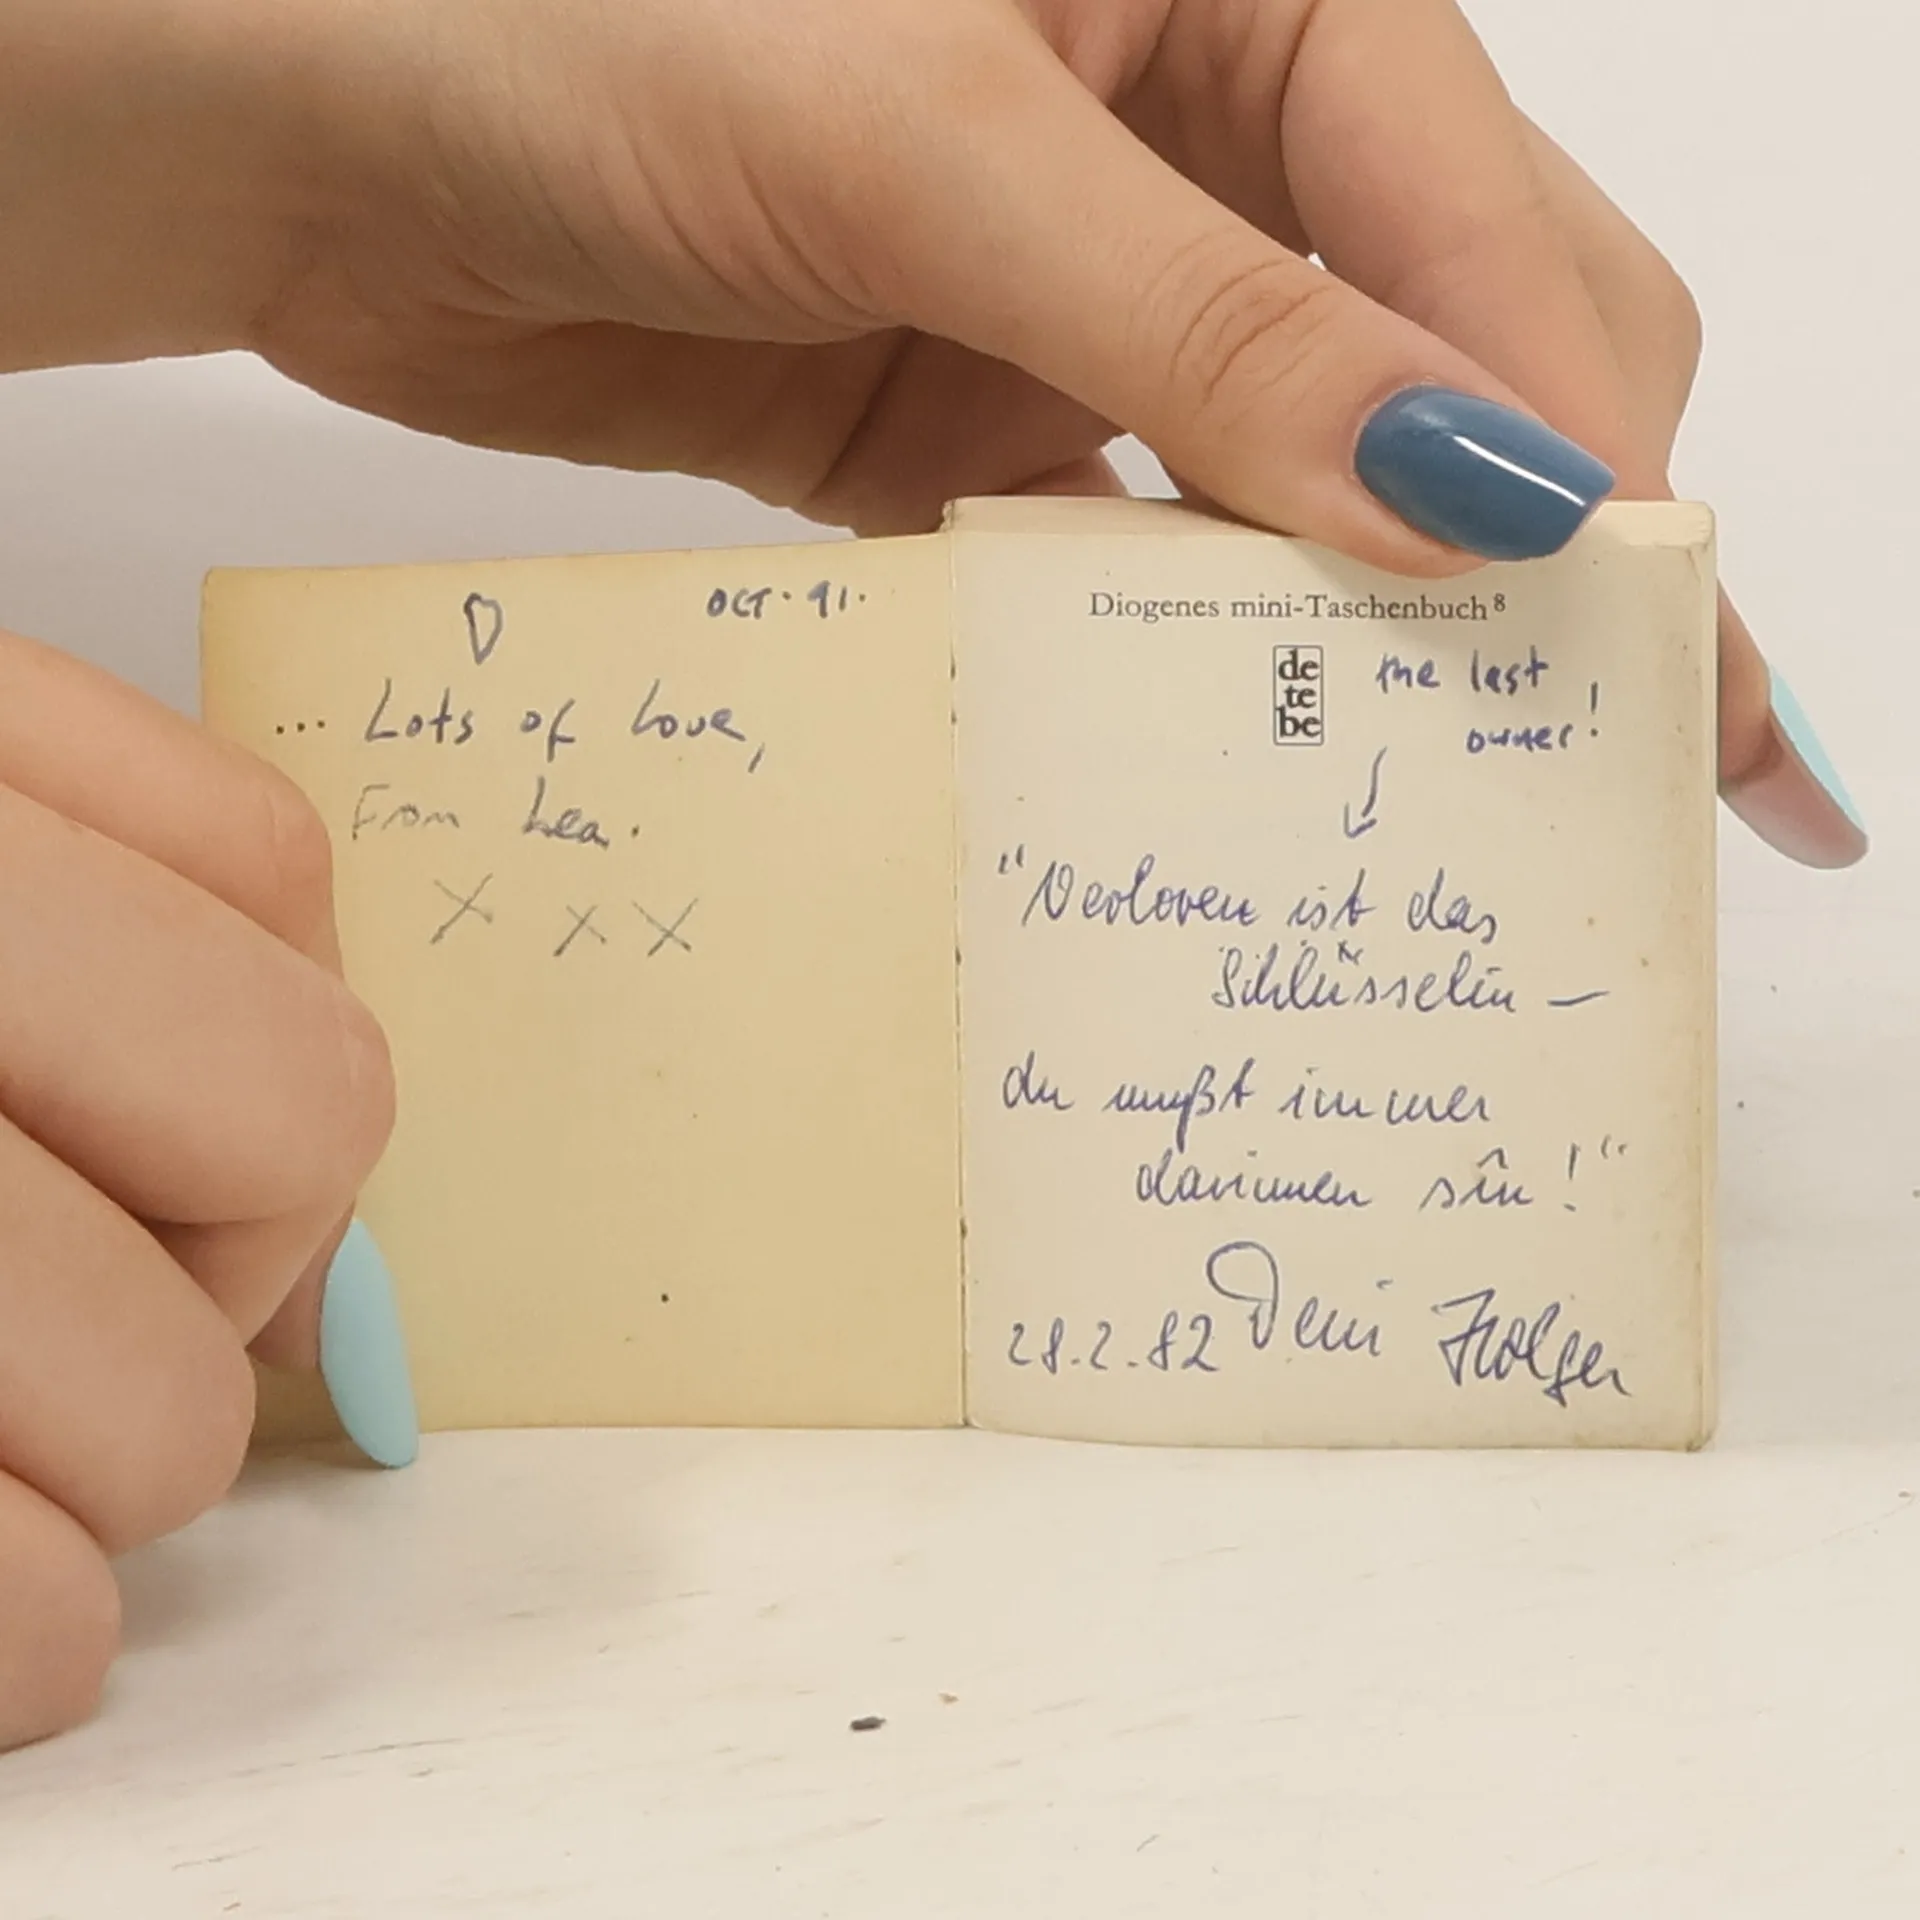 OCT. 91.
... Lots of Love,
From Lea.
X X X
Diogenes mini-Taschenbuch 8
de
te
be
the last
owner!
"Verloren ist das
Schlüsselin —
du mußt immer
darinnen sîn!"
28.2.82 Dein Holger